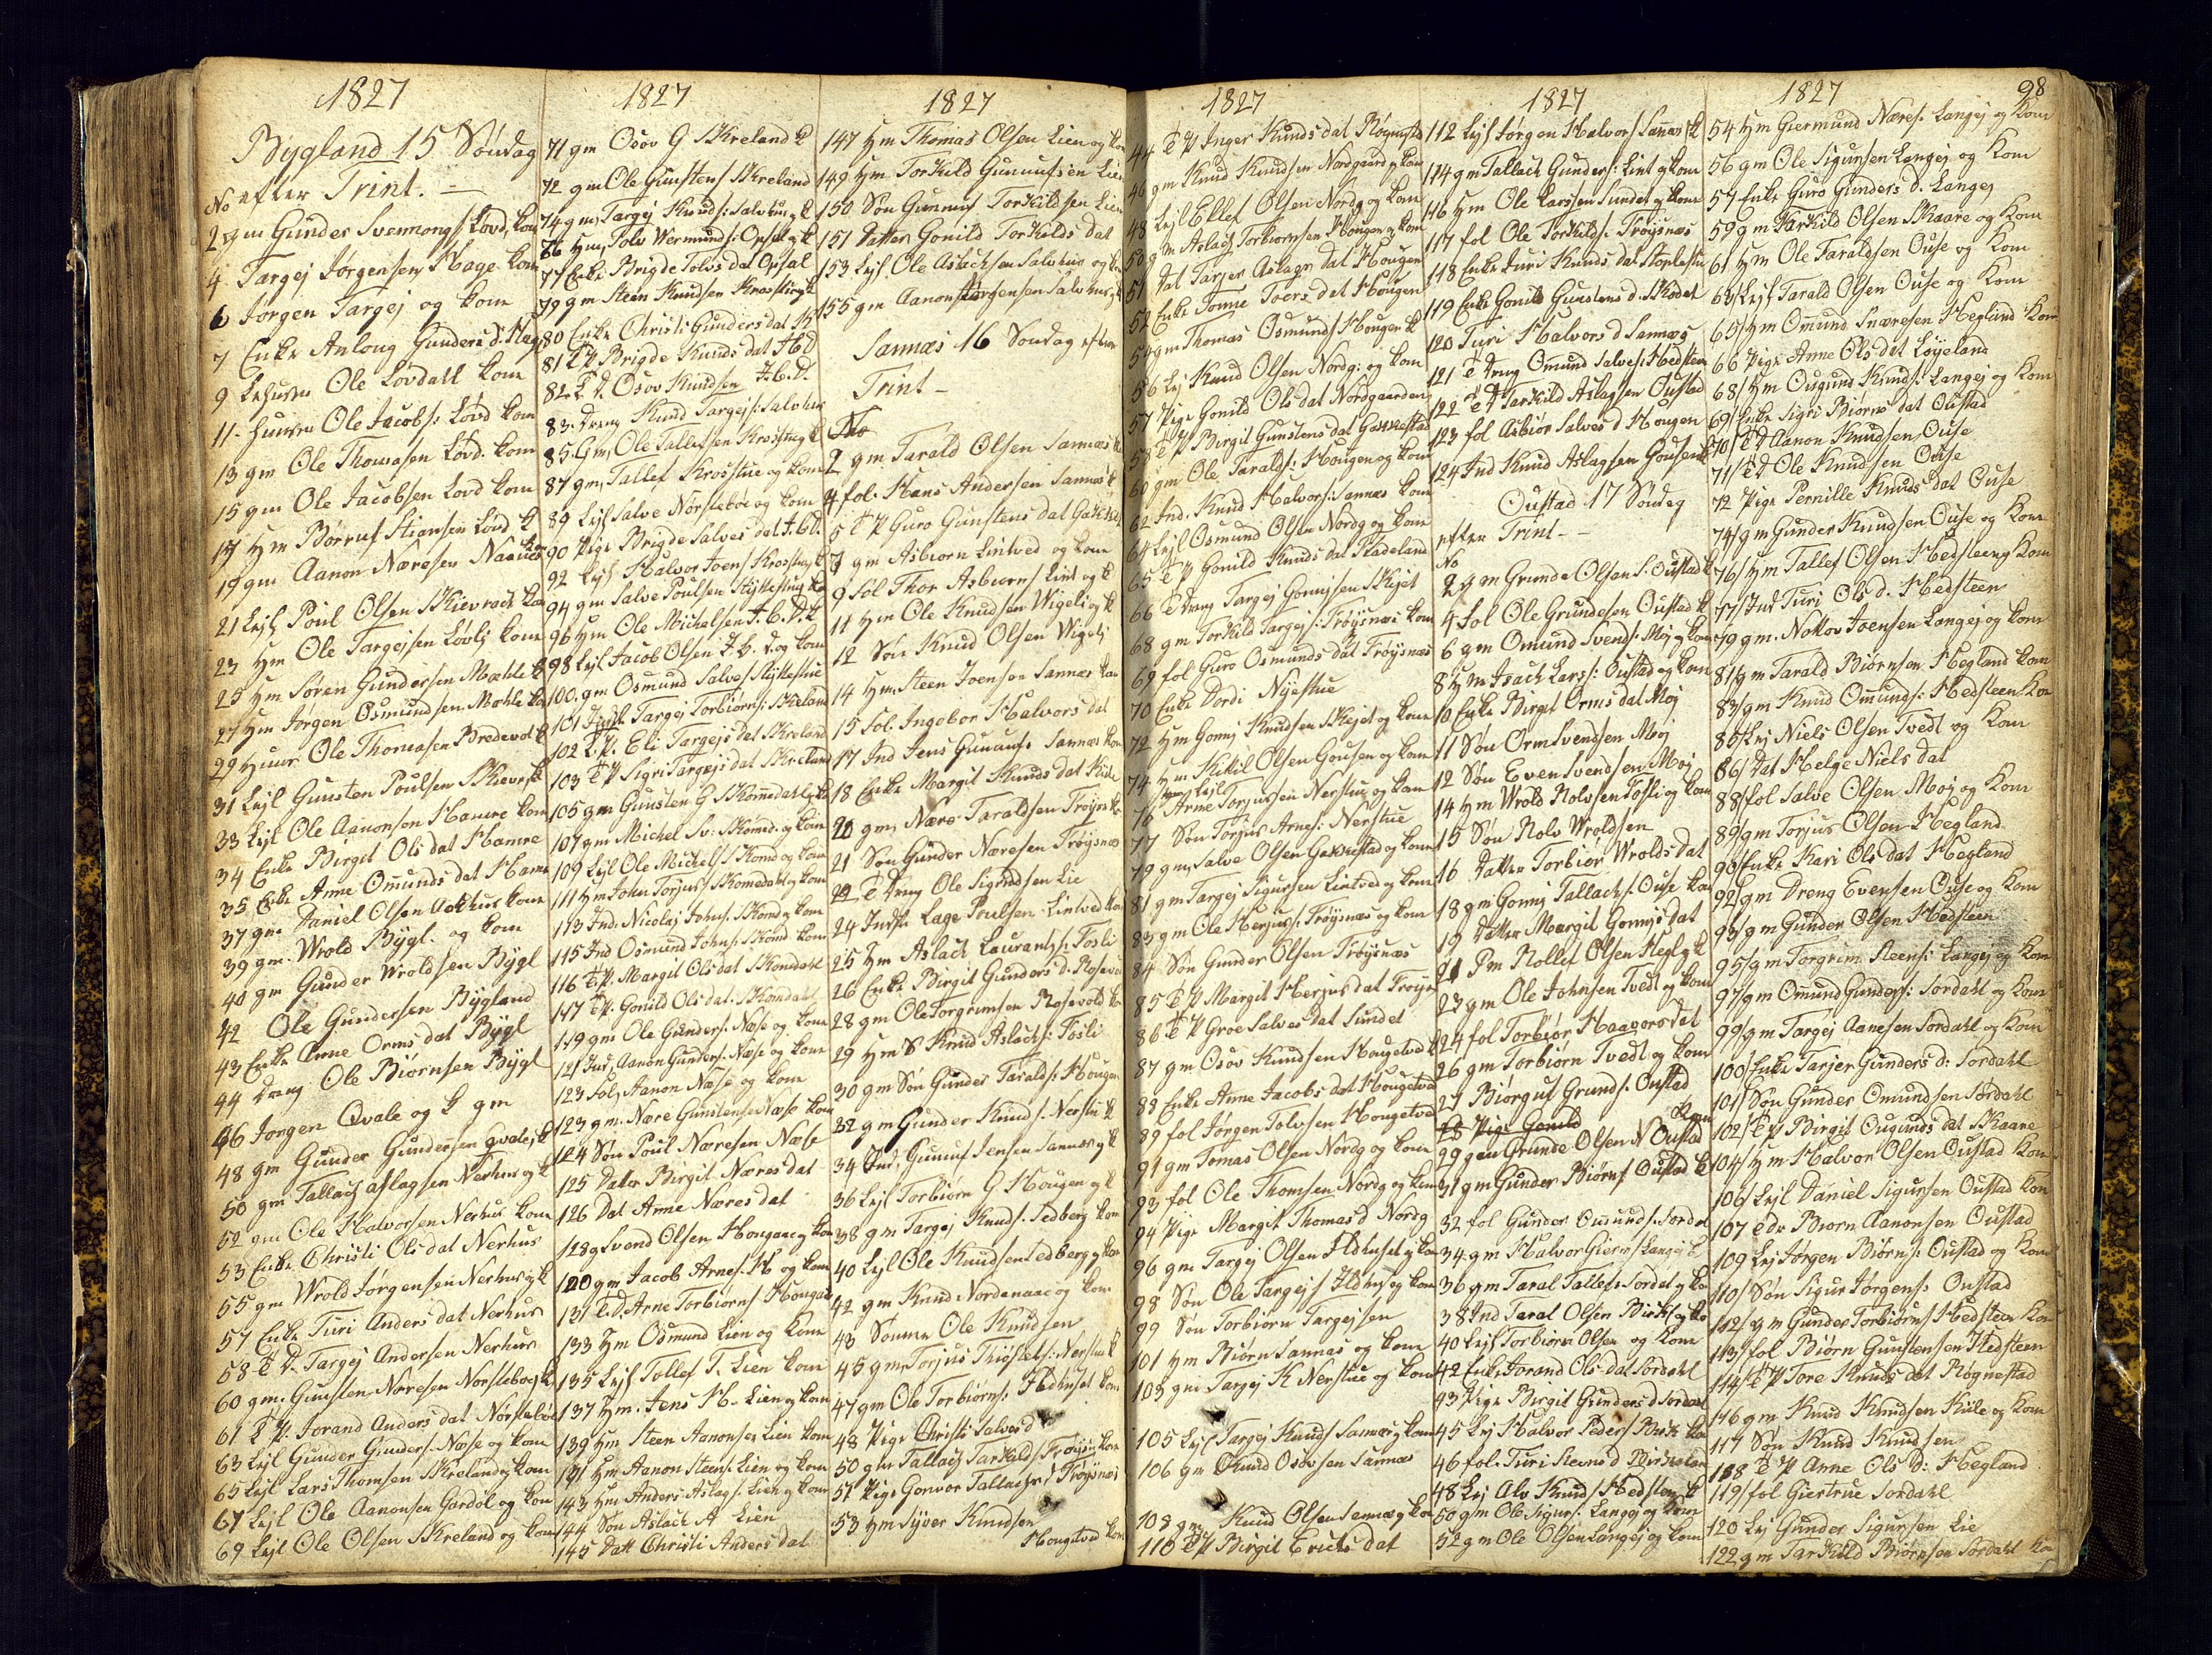 1827
Bygland 15 Søndag
No efter Trint. —
2 gm Gunder Svennongs Lovd. kone
4 Targej Jørgensen Hage kone
6 Jørgen Targej og kone
7 Enke Anloug Gunders d: Hage
9 Ole Lovdall kone
11 Ole Jacobs: Løvd kone
13 gm Ole Thomasen Løvd. kone
15 gm Ole Jacobsen Lovd kone
17 Hm Børruf Stiansen Lovd k
19 gm Aanon Næresen
21 Lejl Poul Olsen
23 Hm Ole Targejsen Løvlj kone
25 Hm Søren Gundersen Mæhle k
27 Hm Jørgen Osmundsen Mæhle kone
29 Ole Thomasen Bredevol k
31 Lejl Gunsten Poulsen
33 Lejl Ole Aanonsen Hamre kone
34 Enke Birgit Ols dat Hamre
35 Enke Anne Omunds dat Hamre
37 gm Daniel Olsen kone
39 gm. Wrold Bygl. og kone
40 gm Gunder Wroldsen Bygl
42 Ole Gundersen Bygland
43 Enke Anne Orms dat Bygl
44 Dreng Ole Biørnsen Bygl
46 Jorgen Qvale og k gm
48 gm Gunder Gundersen Qvale, k
50 gm Tallach Aslagsen Nerhus og k
52 gm Ole Halvorsen Nerhus kone
53 Enke Christi Ols dat Nerhus
55 gm Wrold Jørgensen Nerhus og k
57 Enke Turi Anders dat Nerhus
58 E D. Targej Andersen Nerhus
60 gm. Gunsten Næresen Norsleboe, k
61 E P. Jorand Anders dat Nørsleboe
63 Lejl Gunder Gunders: Næse og kone
65 Lejl Lars Thomsen Skreland og kone
67 Lejl Ole Aanonsen Gardol og kone
69 Lejl Ole Olsen Skreland og kone
1827
71 gm Osov G Skreland k
72 gm Ole Gunstens Skreland
74 gm, Targej Knuds: Salvhus og k
76 Hm, Tolv Wermunds: Opsal og k
77 Enke Brigde Tolvs dat Opsal
79 gm Steen Knudsen Krosstue og k
80 Enke Christi Gunders dat
81 E P. Brigde Knuds dat
82 E D. Osov Knudsen
83. Dreng Knud Targejs: Salvhus
85. Gm, Ole Tallefsen Krosstue og k
87 gm, Tallef Krosstue og kone
89 Lejl Salve Nørsleboe og kone
90 Pige Brigde Salves dat
92 Lejl Halvor Joens Krosstue, k
94 gm Salve Poulsen Styllestue
96 Hm Ole Michelsen
98 Lejl Jacob Olsen og kone
100. gm Osmund Salves Styllestue
101 Targej Torbiørns: Skreland
102 E. P. Eli Targejs dat Skreland
103 E P Sigri Targejs dat Skreland
105 gm Gunsten G Skomedahl, k
107 gm Michel Sv: Skomed. og kone
109 Lejl Ole Michels Skomd og kone
111 Hm John Torjus: Skomedahl og kone
113 Ind. Nicolaj Johns. Skomd og kone
115 Ind Osmund Johns. Skomd kone
116 E P. Margit Ols dat Skomdahl
117 E P. Gonild Ols dat: Skomdahl
119 gm Ole Gunders: Næse og kone
121 Ind, Aanon Gunders: Næse og kone
123 Fol, Aanon Næse og kone
123 gm. Nære Gunstense Næse kone
124 Søn Poul Næresen Næse
125 Datter Birgit. Næres dat
126 Dat Anne Næres dat
128 g Svend Olsen Hougaae og kone
120 gm Jacob Arnes. H og kone
131 E D. Arne Torbiørns Hougaae
133 Hm Osmund Lien og kone
135 Lejl Tollef T. Lien kone
137 Hm. Jens H. Lien og kone
139 Hm Steen Aanonsen Lien kone
141 Hm Aanon Steens: Lien og kone
143 Hm Anders Aslags: Lien og kone
144 Søn Aslack A Lien
145 Datt Christi Anders dat
1827
147 Hm Thomas Olsen Lien og kone
149 Hm Torkild Gunnufsen Lien
150 Søn Gunnuf Torkildsen Lien
151 Datter Gonild Torkilds dat
153 Lejl Ole Aslachsen Salvhus og kone
155 gm Aanon Jørgensen Salvhus, k
Sannæs 16 Søndag efter
Trint —
No
2 gm Tarald Olsen Sannæs k
4 fol. Hans Andersen Sannæs k
5 E P Guro Gunstens dat
7 gm Asbiørn Lintved og kone
9 fol Thor Asbiørns Lint og k
11 Hm Ole Knudsen Wigeli og k
12 Søn Knud Olsen Wigelj
14 Hm Steen Joensen Sannæs kone
15 fol. Ingebor Halvors dat
17 Ind Jens Gunnufs Sannæs kone
18 Enke Margit Knuds dat
20 gm, Nære Taraldsen Frøysnæs k
21 Søn Gunder Næresen Frøysnæs
22 E Dreng Ole Sigurdsen Lie
24 Lage Poulsen Lintved kone
25 Hm Aslach Laurants: Fosli
26 Enke Birgit Gunders d. Rosevold
28 gm Ole Torgrimsen Rosevold kone
29 Hm S Knud Aslachs: Fosli
30 gm Søn Gunder Taralds: Hougen
32 gm Gunder Knuds. Nerstue k
34 Ind, Gunuf Jensen Sannæs og k
36 Lejl Torbiørn G Hougen og k
38 gm Targej Knuds. Sedberg kone
40 Lejl Ole Knudsen Sedberg og kone
42 gm Knud Nordenaae og kone
43 Sønnen Ole Knudsen
45 gm, Torjus Thiøstels: Nerstue k
47 gm Ole Torbiørns: Ildhuset kone
48 Pige Christi Salves d
50 gm Tallach Tarkilds: Frøysn kone
51 Pige Gonvor Tallachs d Frøysnæs
53 Hm Syver Knudsen
Hougetved kone
1827
44 E P Inger Knuds dat Røgnestad
46 gm Knud Knudsen Nordgaard og kone
48 Lejl Ellef Olsen Nordg og kone
50 gm Aslach Torbiornsen Hougen og kone
51 Dat Tarjer Aslags dat Hougen
52 Enke Tonne Toers dat Hougen
54 gm Thomas Osmunds Hougen k
56 Lej Knud Olsen Nordg: og kone
57 Pige Gonild Ols dat Nordgaarden
58 E P Birgit Gunstens dat
60 gm Ole Taralds: Hougen og kone
62 Ind. Knud Halvors: Sannæs kone
64 Lejl Osmund Olsen Nordg og kone
65 E P Gonild Knuds dat
66 E Dreng Targej Gonnjsen Skejet
68 gm Torkild Targejs: Frøysnæs kone
69 fol Guro Osmunds dat Frøysnæs
70 Enke Dordi Nystue
72 Hm Gonnj Knudsen Skejet og kone
74 Hm Kittil Olsen Gousen og kone
76 Lejl Arne Torjussen Nerstue og kone
77 Søn Torjus Arnes: Nerstue
79 gm, Salve Olsen og kone
81 gm Targej Sigursen Lintved og kone
83 gm Ole Herjus: Frøysnæs og kone
84 Søn Gunder Olsen Frøysnæs
85 E P Margit Herjus dat Frøysn
86 E P Groe Salves dat Sundet
87 gm Osov Knudsen Hougetved k
88 Enke Anne Jacobs dat Hougetved
89 fol Jørgen Tolvsen Hougetved
91 gm Tomas Olsen Nordg og kone
93 fol Ole Thomsen Nordg og kone
94 Pige Margit Thomas d Nordg
96 gm Targej Olsen Ildhuset og kone
98 Søn Ole Targejs Ildhus og kone
99 Søn Torbiørn Targejsen
101 Hm Biørn Sannæs og kone
103 gm Targej K Nerstue og kone
105 Lejl Targej Knuds Sannæs og kone
106 gm Knud Osovsen Sannæs
108 gm Knud Olsen Sannæs og kone
110 E P Birgit Erichs dat
1827
112 Lejl Jørgen Halvors Sannæs k
114 gm Tallach Gunders: Lint og kone
116 Hm Ole Larssen Sundet og kone
117 fol Ole Torkilds: Frøysnæs
118 Enke Turi Knuds dat
119 Enke Gonild Gunstens d.
120 Turi Halvors d Sannæs
121 E Dreng Omund Salves: Hedsteen
122 E D Tarkild Aslagsen Oustad
123 fol Asbiør Salves d Hougen
124 Ind Knud Aslagsen Gousen k
Oustad 17 Søndag
efter Trint —
No
2 gm Grunde Olsen S. Oustad k
4 fol Ole Grundesen Oustad k
6 gm Omund Svends: Moj og kone
8 Hm Isach Lars: Oustad og kone
10 Enke Birgit Orms dat Moj
11 Søn Orm Svendsen Moj
12 Søn Even Svendsen Moj
14 Hm Wrold Rolvsen Fosli og kone
15 Søn Rolv Wroldsen
16 Datter Torbiør Wrolds dat
18 gm Gonnj Tallachs: Ouse kone
19 Datter Margit Gonnjs dat
21 Pm Rollef Olsen og k
23 gm Ole Johnsen Tvedt og kone
24 fol Torbiør Haavors dat
26 gm Torbiørn Tvedt og kone
27 Biørguf Grunds: Oustad
28 Pige Gonild
29 gm Grunde Olsen N Oustad kone
31 gm Gunder Biørns Oustad k
32 fol Gunder Omunds: Sordal
34 gm Halvor Gierms Langej k
36 gm Taral Tallefs: Sordal og kone
38 Ind Taral Olsen og kone
40 Lejl Torbiørn Olsen og kone
42 Enke Jorand Ols dat Sordahl
43 Pige Birgit Gunders d Sordal
45 Lej Halvor Peders kone
46 fol. Turi Steens d
48 Lej Alv Knuds Hedsteen k
50 gm Ole Sigurs: Langej og kone
52 gm Ole Olsen Langej og kone
1827
98
54 Hm Giermund Næres: Langej og kone
56 gm Ole Sigursen Langej og kone
57 Enke Guro Gunders d. Langej
59 gm Tarkild Olsen Skaare og kone
61 Hm Ole Taraldsen Ouse og kone
63 Lejl Tarald Olsen Ouse og kone
65 Hm Omund Snæresen Hegland kone
66 Pige Anne Ols dat Løyeland
68 Hm Ougund Knuds: Langej og kone
69 Enke Sigri Biørns dat Oustad
70 E D Aanon Knudsen Ouse
71 E D Ole Knudsen Ouse
72 Pige Pernille Knuds dat Ouse
74 gm Gunder Knudsen Ouse og kone
76 Hm Tallef Olsen Hedsteen og kone
77 Ind Turi Ols d. Hedsteen
79 gm. Nottov Joensen Langej og kone
81 Hm Tarald Biørnsen Hegland kone
83 gm Knud Omunds: Hedsteen kone
85 Lej Niels Olsen Tvedt og kone
86 Dat Helge Niels dat
88 fol Salve Olsen Moj og kone
89 gm Torjus Olsen Hegland
90 Enke Kari Ols dat Hegland
92 gm Dreng Evensen Ouse og kone
93 gm Gunder Olsen Hedsteen
95 gm Torgrim Steens: Langej og kone
97 gm Omund Gunders: Sordahl og kone
99 gm Targej Aanesen Sordahl og kone
100 Enke Tarjer Gunders d: Sordahl
101 Søn Gunder Omundsen Sordahl
102 E P Birgit Ougunds dat Skaare
104 Hm Halvor Olsen Oustad kone
106 Lejl Daniel Sigursen Oustad kone
107 E Dr Biørn Aanonsen Oustad
109 Lej Jørgen Biørns: Oustad og kone
110 Søn Sigur Jørgens: Oustad
112 gm Gunder Torbiørns Hedsteen kone
113 fol Biørn Gunstensen Hedsteen
114 E P Tore Knuds dat Rognestad
116 gm Knud Knudsen Kiile og kone
117 Søn Knud Knudsen
118 E P Anne Ols d: Hegland
119 fol Giertrue Sordahl
120 Lej Gunder Sigursen Lie
122 gm Tarkild Biørnsen Sordahl kone